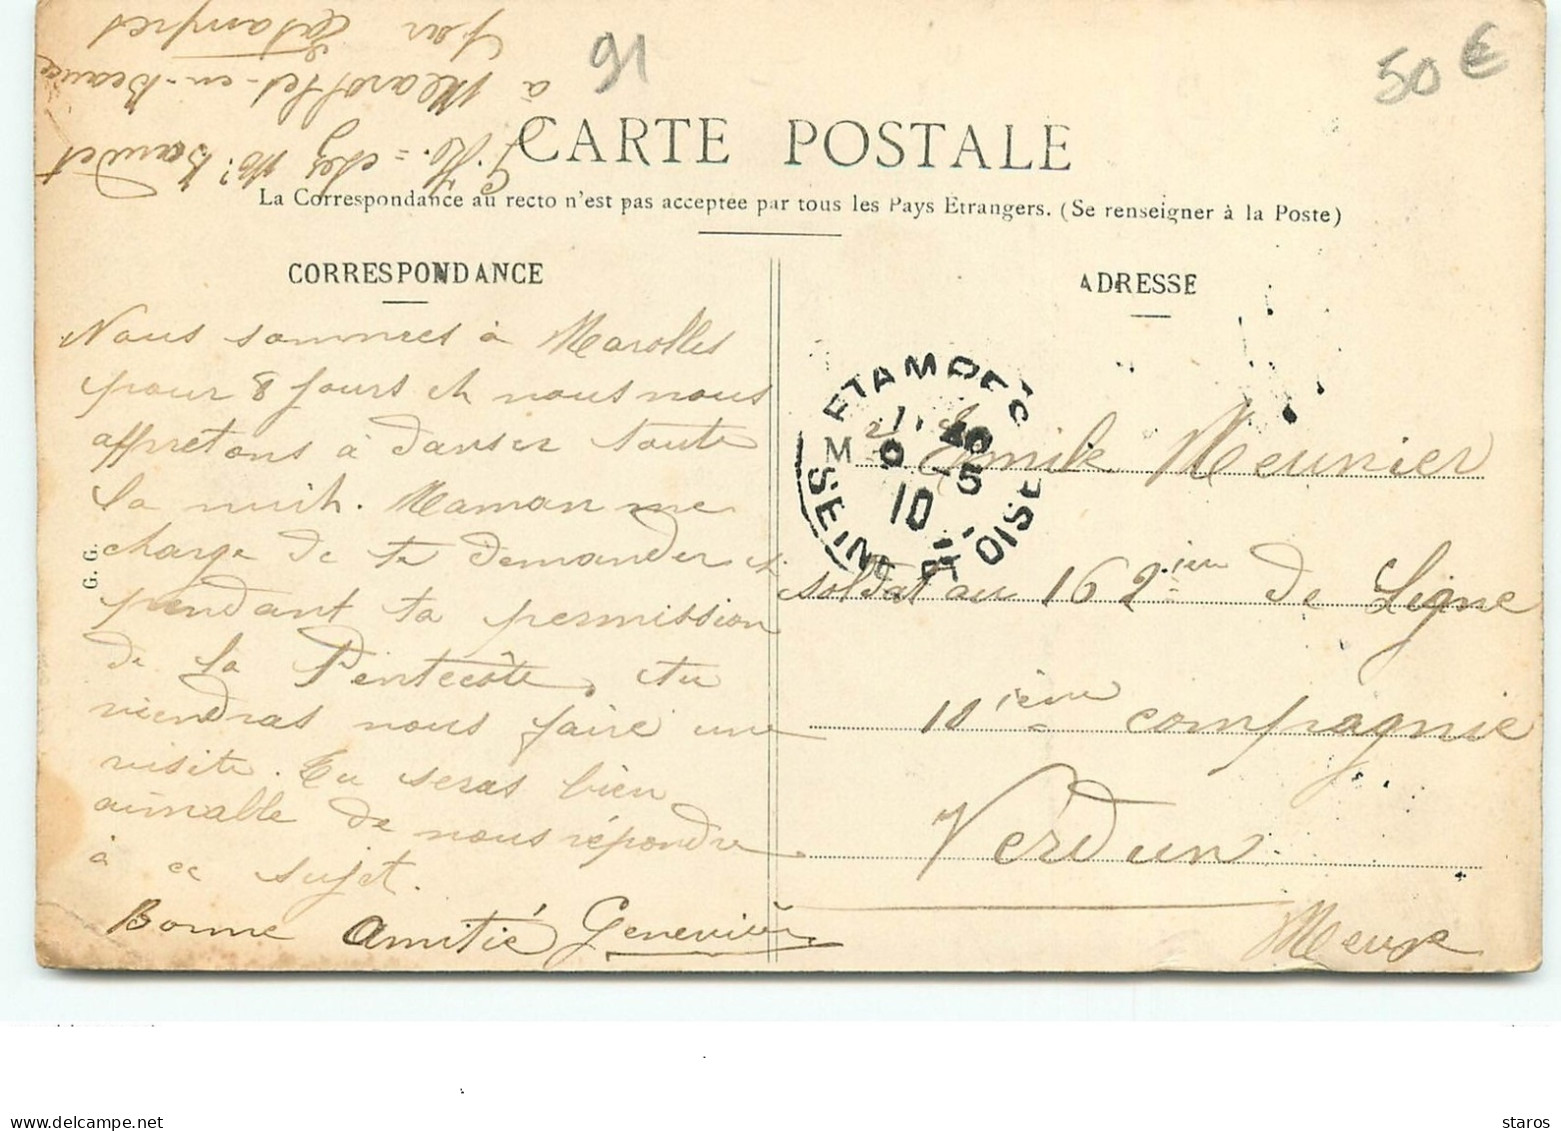 91
50 €
G. H. = chez Mr. Baudet
à Marolles-en-Beauce
par Etampes
CARTE POSTALE
La Correspondance au recto n'est pas acceptée par tous les Pays Etrangers. (Se renseigner à la Poste)
CORRESPONDANCE
Nous sommes à Marolles
pour 8 jours et nous nous
apprêtons à danser toute
la nuit. Maman me
charge de te demander si
pendant ta permission
de la Pentecôte, tu
viendras nous faire une
visite. Tu seras bien
aimable de nous répondre
à ce sujet.
Bonne amitié Geneviève
G. G.
ADRESSE
ETAMPES
10
5
10
SEINE ET OISE
M Emile Meunier
soldat au 162ième de Ligne
10ième compagnie
Verdun
Meuse
www.delcampe.net
staros